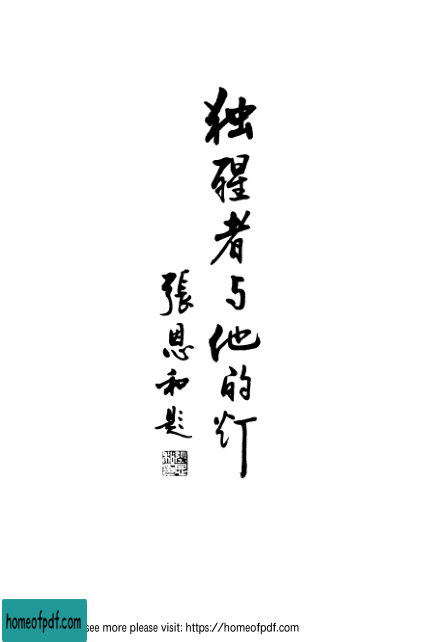 独醒者与他的灯
張恩和題
homeofpdf.com
see more please visit: https://homeofpdf.com